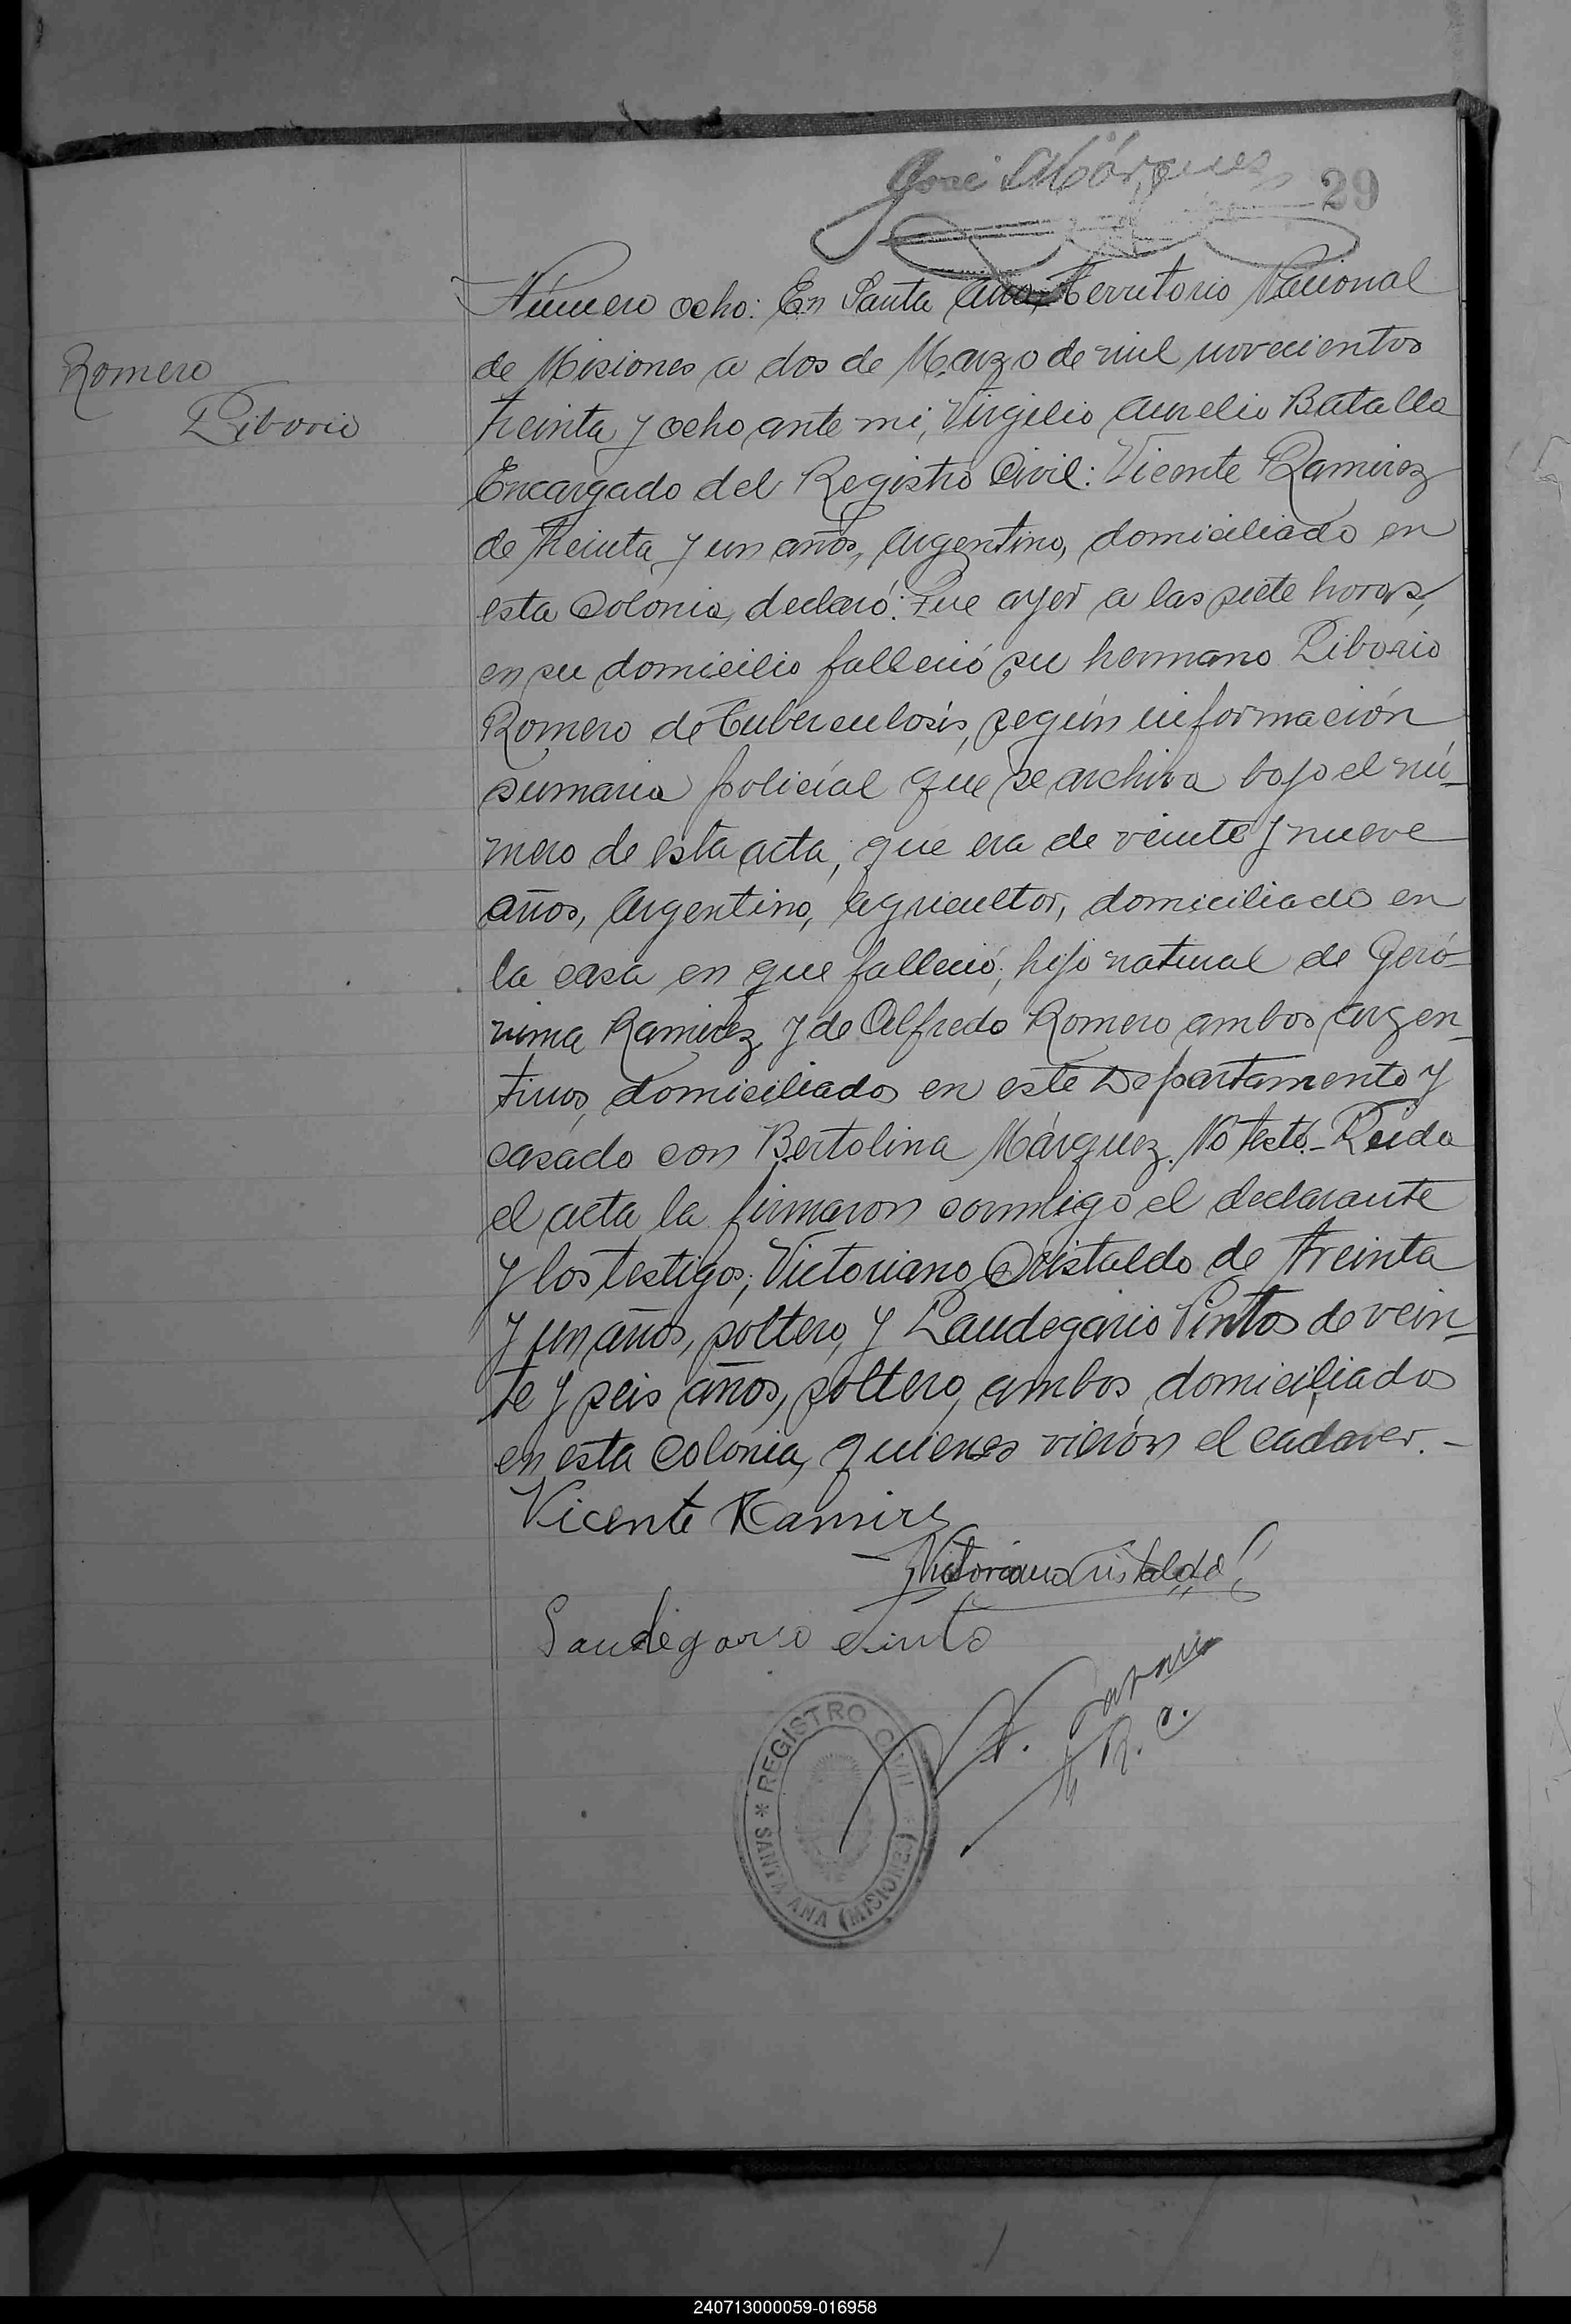 José Márques
29
Número ocho: En Santa Ana, Territorio Nacional
de Misiones a dos de Marzo de mil novecientos
Romero
Liborio
treinta y ocho ante mi, Virgilio Aurelio Batalla
Encargado del Registro Civil: Vicente Ramirez
de treinta y un años, argentino, domiciliado en
esta Colonia, declaró: Que ayer a las siete horas,
en su domicilio falleció su hermano Liborio
Romero de Tuberculosis, según información
sumaria policial que se archiva bajo el nú-
mero de esta acta, que era de veinte y nueve
años, Argentino, agricultor, domiciliado en
la casa en que falleció, hijo natural de Geró-
nima Ramirez y de Alfredo Romero ambos argen-
tinos, domiciliados en este Departamento y
casado con Bertolina Márquez. No testó.- Leida
el acta la firmaron conmigo el declarante
y los testigos; Victoriano Cristaldo de treinta
y un años, soltero, y Laudegario Pintos de vein-
te y seis años, soltero, ambos domiciliados
en esta Colonia, quienes vierón el cádaver. -
Vicente Ramires
Victoriano Cristaldo
Laudegario Pinto
R. C.
REGISTRO CIVIL
* SANTA ANA (MISIONES) *
240713000059-016958